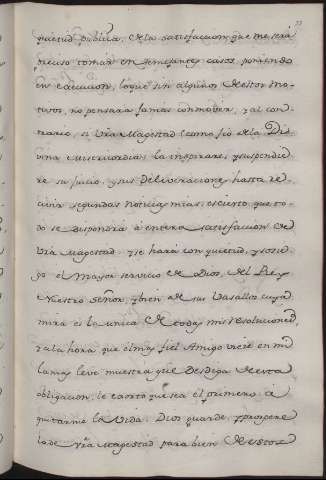 quietud publica, de la satisfaccion que me será
preciso tomar en semejantes casos, poniendo
en execucion, lo que sin algunos de estos mo-
tivos, no pensara jamas conmover; y al con-
trario, si Vrã Magestad (como fio de la Di-
vina Misericordia) la inspirare, y suspendie
re su juicio, y sus deliveraciones hasta re-
civir segundas noticias mias, es cierto que to-
do se dispondrá à entera satisfaccion de
Vrã Magestad; y se hará con quietud, y sosie-
go el Mayor servicio de Dios, del Rey
Nuestro Señor, y bien de sus Vasallos cuya
mira es la unica de todas mis resoluciones,
y a la hora que el mas fiel Amigo viere en mi
la mas leve muestra que desdiga de esta
obligacion, le exorto que sea el primero à
quitarme la Vida. Dios guarde, y prospere
la de Vrã Magestad para bien de estos